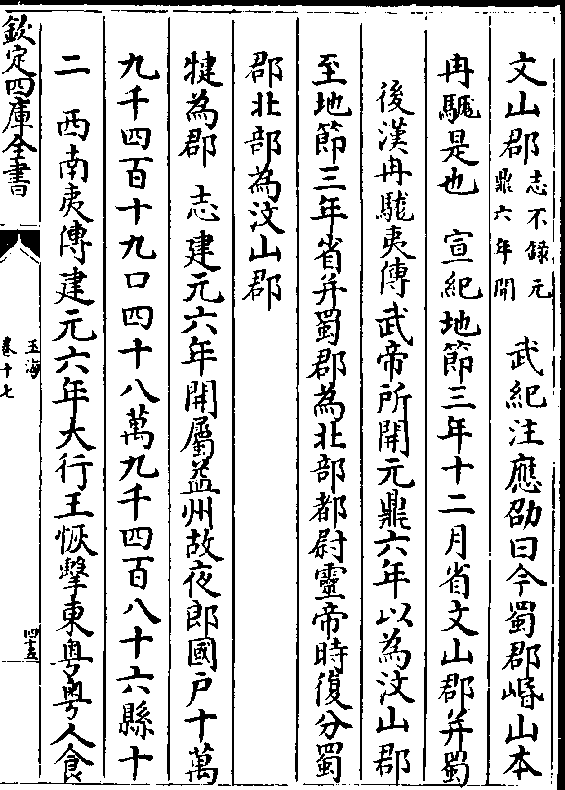 文山郡志不録元鼎六年開　武紀注應劭曰今蜀郡㟭山本
冉駹是也　宣紀地節三年十二月省文山郡并蜀
後漢冉駹夷傳武帝所開元鼎六年以為汶山郡
至地節三年省并蜀郡為北部都尉靈帝時復分蜀
郡北部為汶山郡
犍為郡　志建元六年開屬益州故夜郎國户十萬
九千四百十九口四十八萬九千四百八十六縣十
二　西南夷傳建元六年大行王恢擊東粤粤人食
欽定四庫全書
玉海
卷十七
四十五